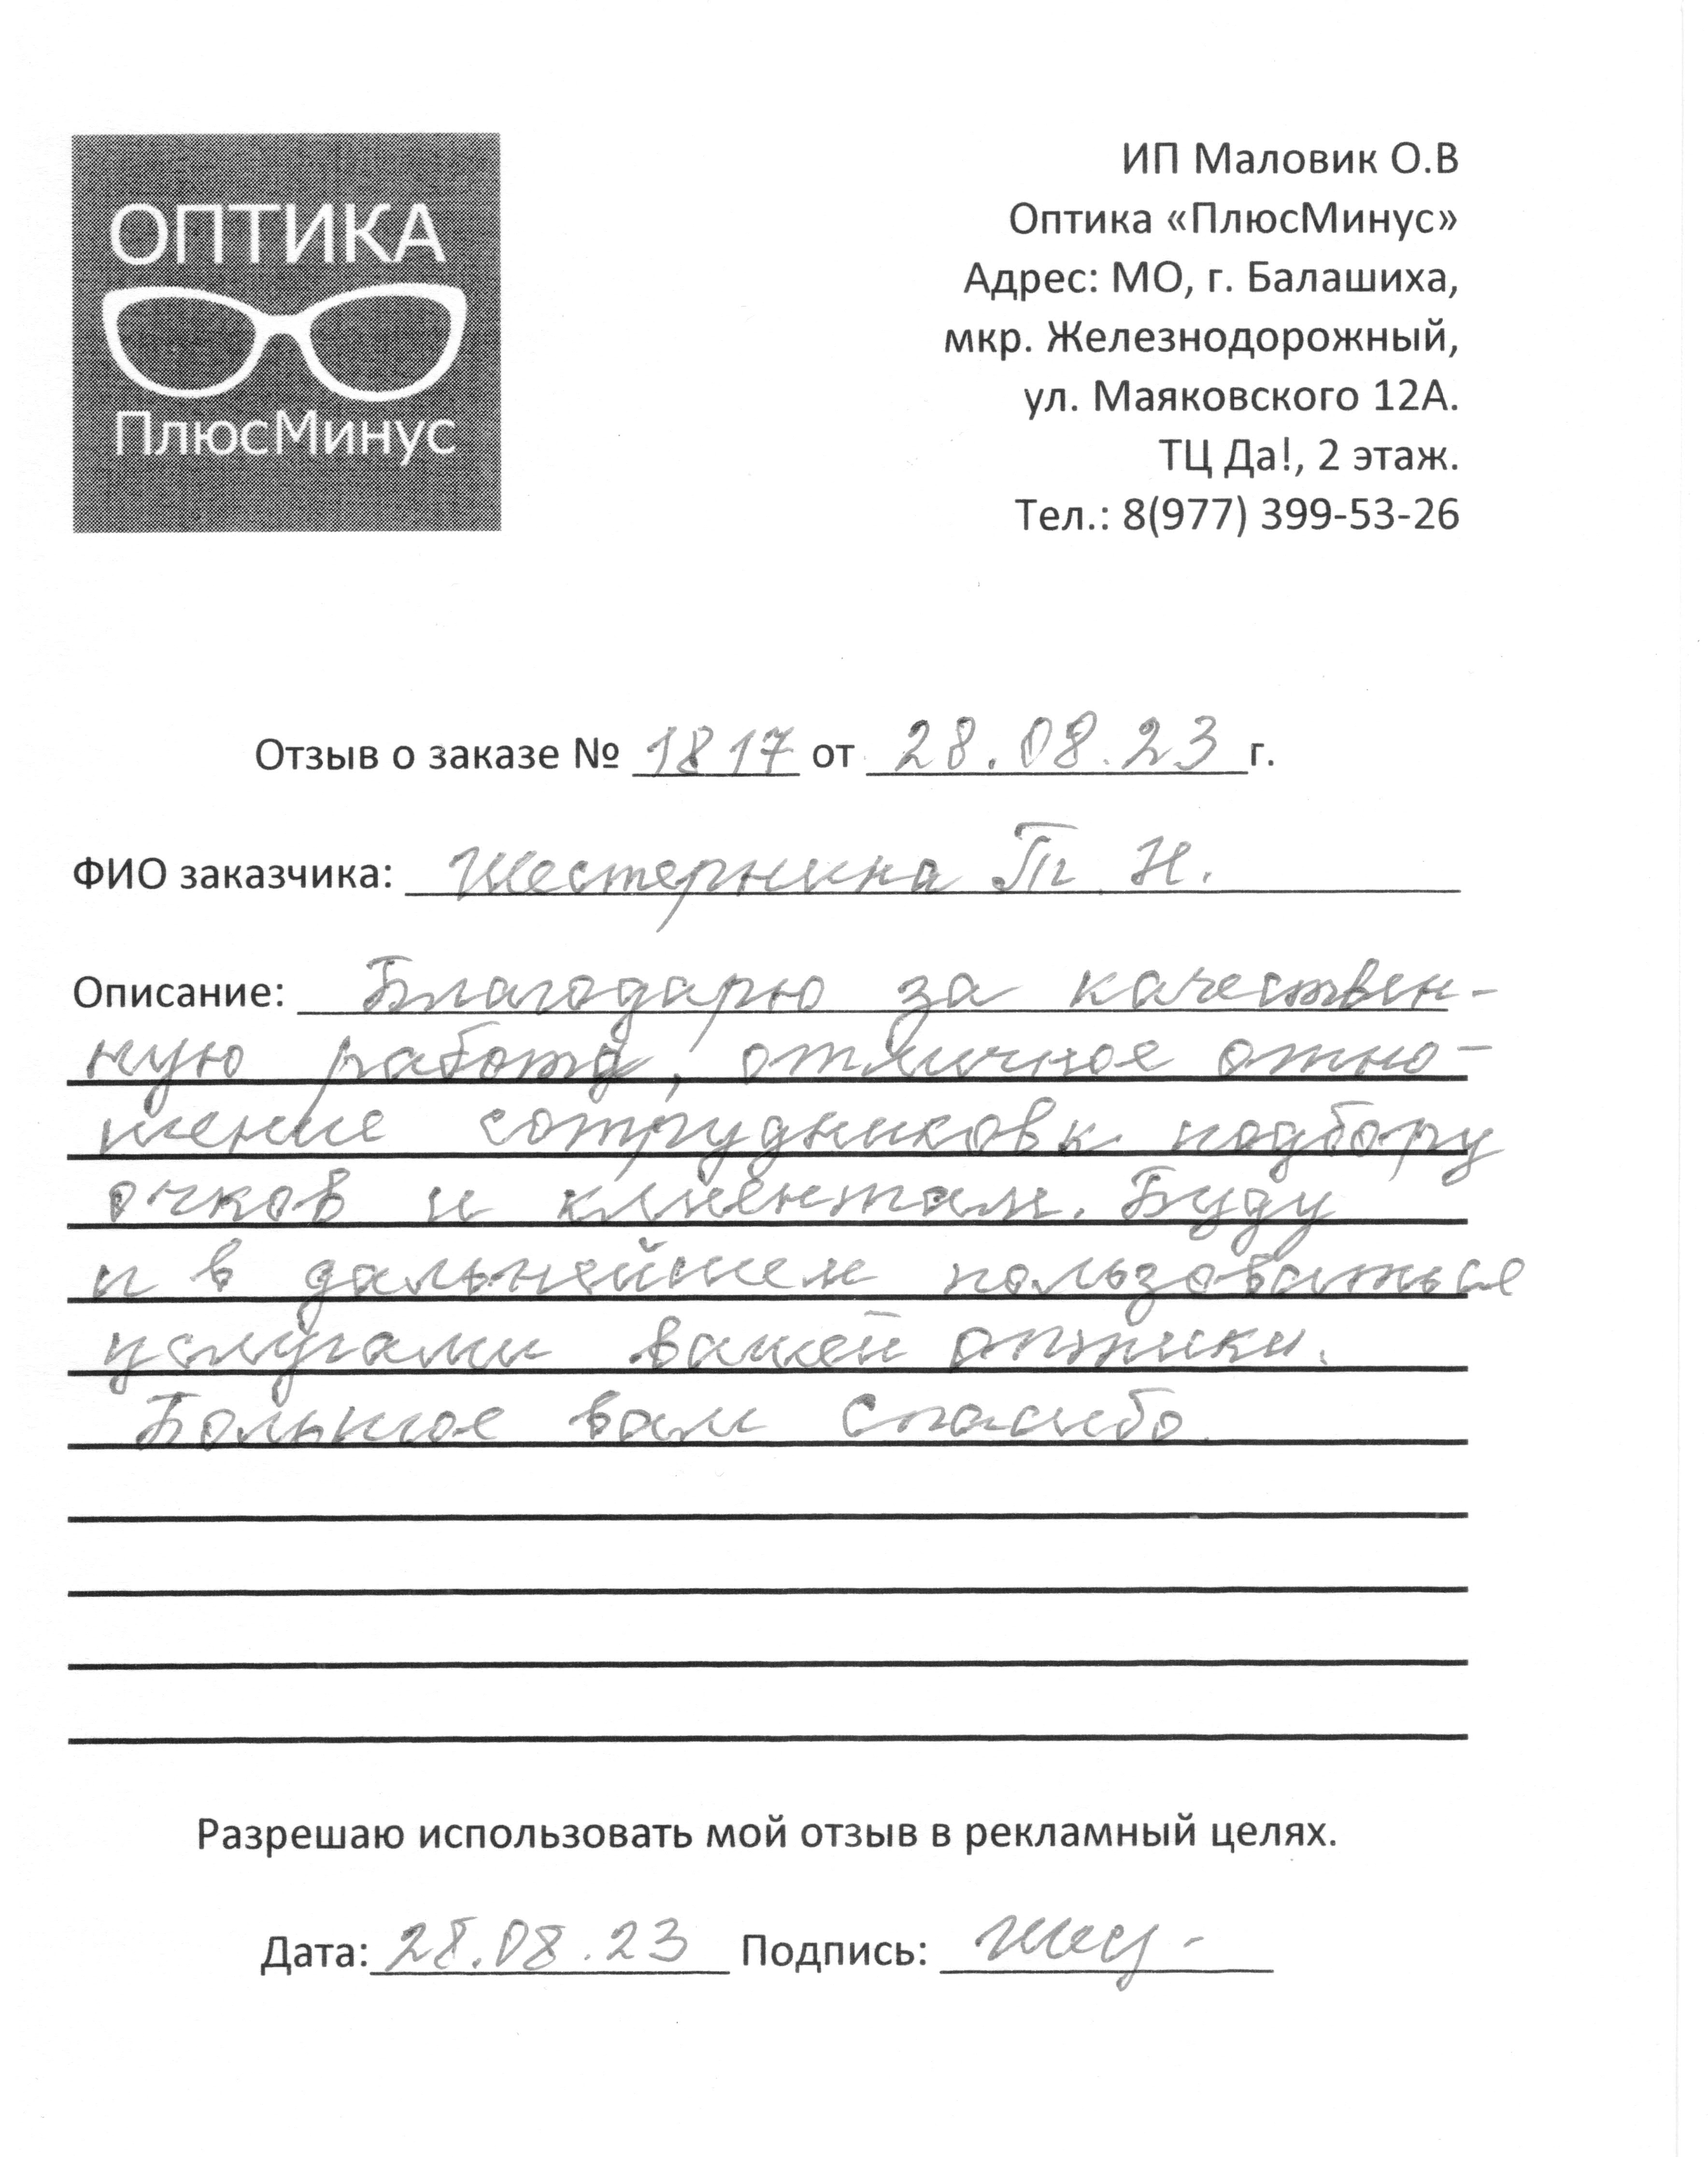 ОПТИКА
ПлюсМинус
ИП Маловик О.В
Оптика «ПлюсМинус»
Адрес: МО, г. Балашиха,
мкр. Железнодорожный,
ул. Маяковского 12А.
ТЦ Да!, 2 этаж.
Тел.: 8(977) 399-53-26
Отзыв о заказе № 1817 от 28.08.23 г.
ФИО заказчика: Шестернина Т. Н.
Описание: Благодарю за качествен-
ную работу, отличное отно-
шение сотрудников к подбору
очков и клиентам. Буду
и в дальнейшем пользоваться
услугами вашей оптики.
Большое вам Спасибо.
Разрешаю использовать мой отзыв в рекламный целях.
Дата: 28.08.23 Подпись: